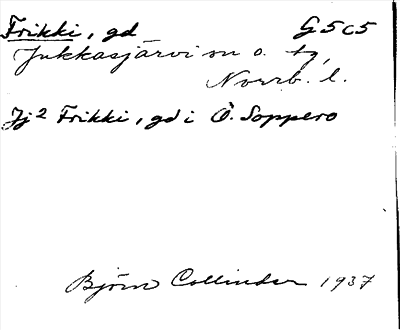 Frikki, gd G5c5
Jukkasjärvi sn o. tg,
Norrb. l.
Jj² Frikki, gd i Ö. Soppero
Björn Collinder 1937